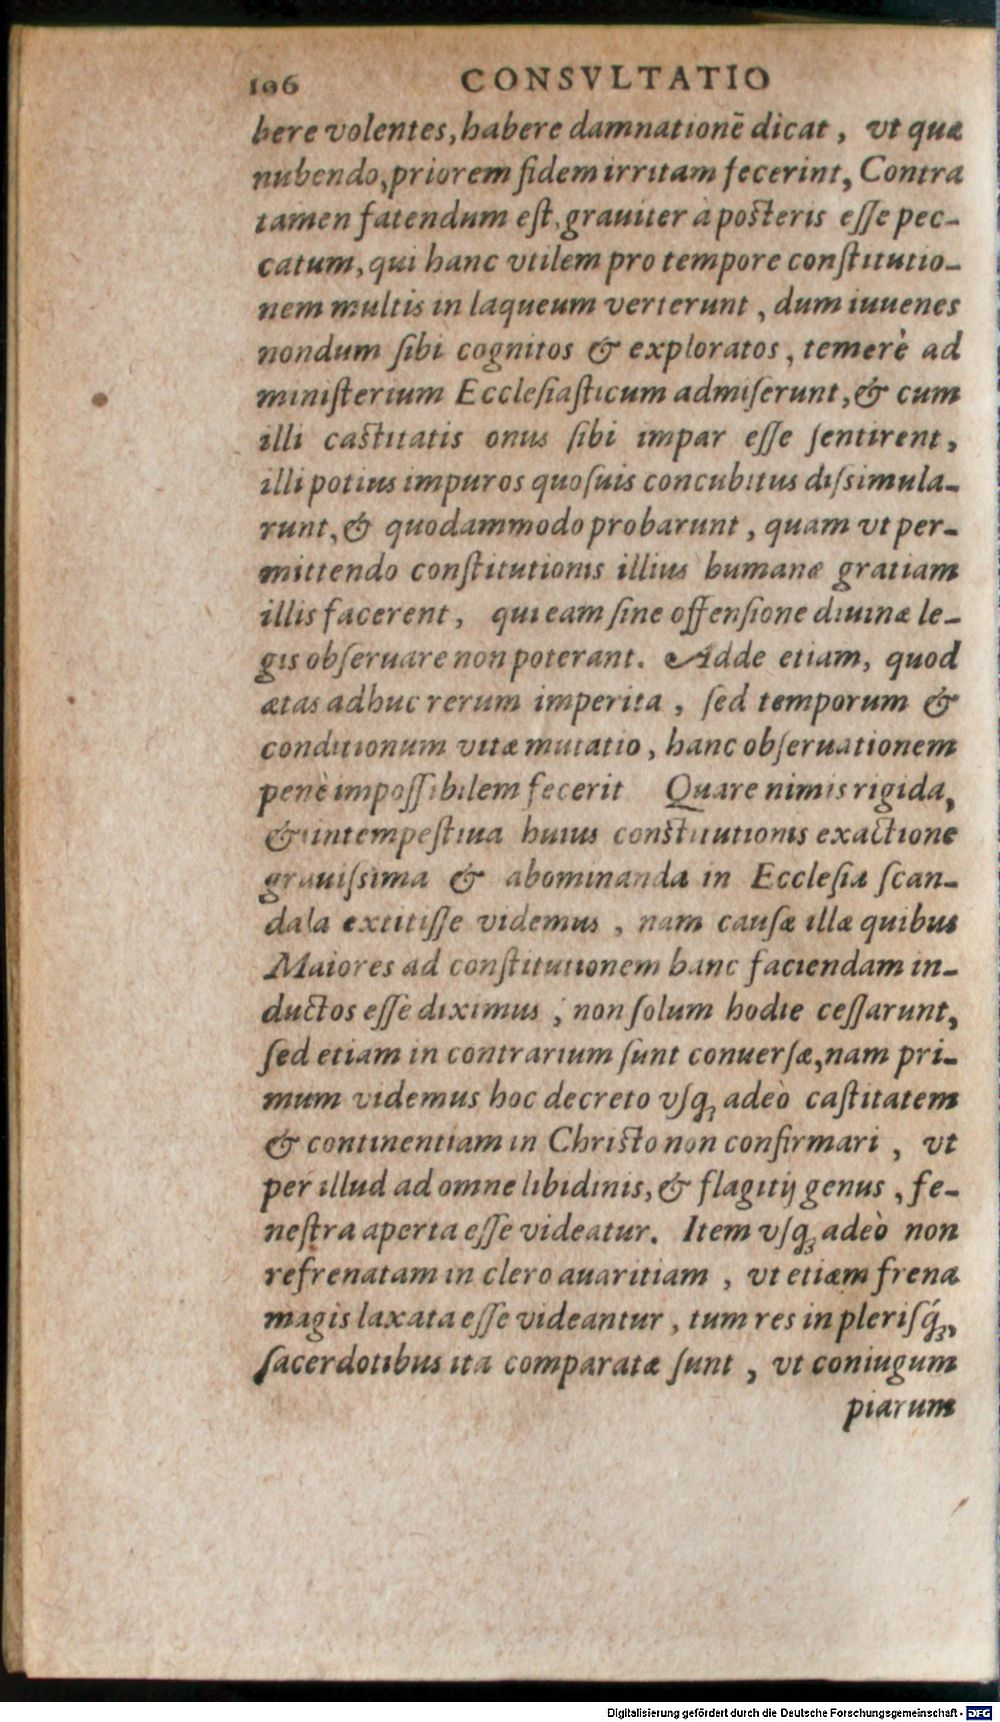 196 CONSVLTATIO
bere volentes, habere damnationē dicat, vt quæ
nubendo, priorem fidem irritam fecerint, Contra
tamen fatendum est, grauiter à posteris esse pec-
catum, qui hanc vtilem pro tempore constitutio-
nem multis in laqueum verterunt, dum iuuenes
nondum sibi cognitos & exploratos, temerè ad
ministerium Ecclesiasticum admiserunt, & cum
illi castitatis onus sibi impar esse sentirent,
illi potius impuros quosuis concubitus dissimula-
runt, & quodammodo probarunt, quam vt per-
mittendo constitutionis illius humanæ gratiam
illis facerent, qui eam sine offensione diuinæ le-
gis obseruare non poterant. Adde etiam, quod
ætas adhuc rerum imperita, sed temporum &
conditionum vitæ mutatio, hanc obseruationem
penè impossibilem fecerit Quare nimis rigida,
& intempestiua huius constitutionis exactione
grauissima & abominanda in Ecclesia scan-
dala extitisse videmus, nam causæ illæ quibus
Maiores ad constitutionem hanc faciendam in-
ductos esse diximus, non solum hodie cessarunt,
sed etiam in contrarium sunt conuersæ, nam pri-
mum videmus hoc decreto vsq; adeò castitatem
& continentiam in Christo non confirmari, vt
per illud ad omne libidinis, & flagitij genus, fe-
nestra aperta esse videatur. Item vsq; adeò non
refrenatam in clero auaritiam, vt etiam frena
magis laxata esse videantur, tum res in plerisq́;,
sacerdotibus ita comparatæ sunt, vt coniugum
piarum
Digitalisierung gefördert durch die Deutsche Forschungsgemeinschaft - DFG